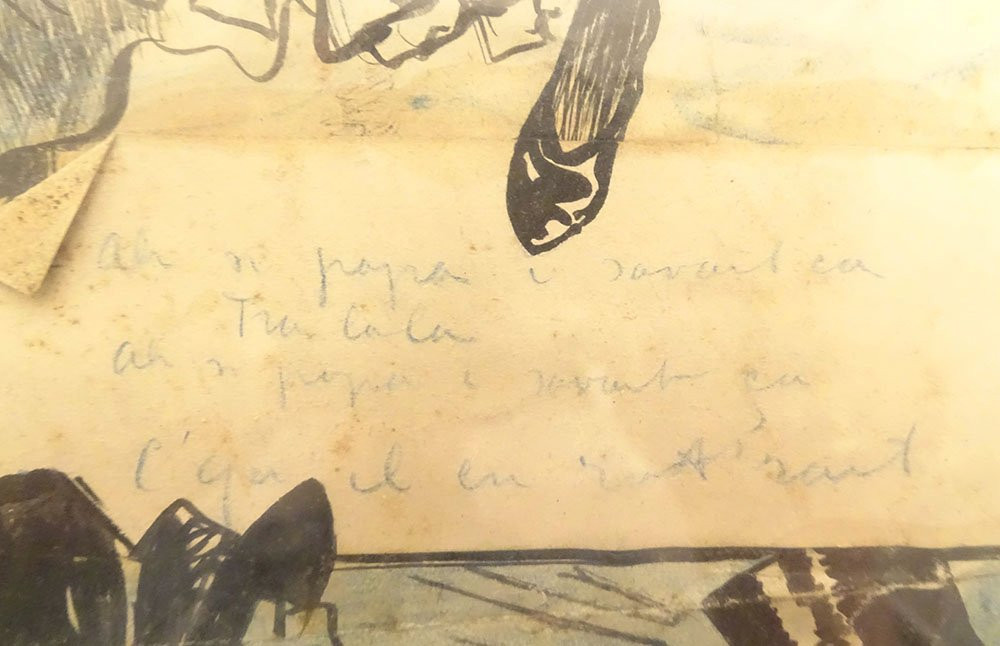 Ah si papa i savait ça
Tra la la
Ah si papa i savait ça
C'qu'il en rott'rait